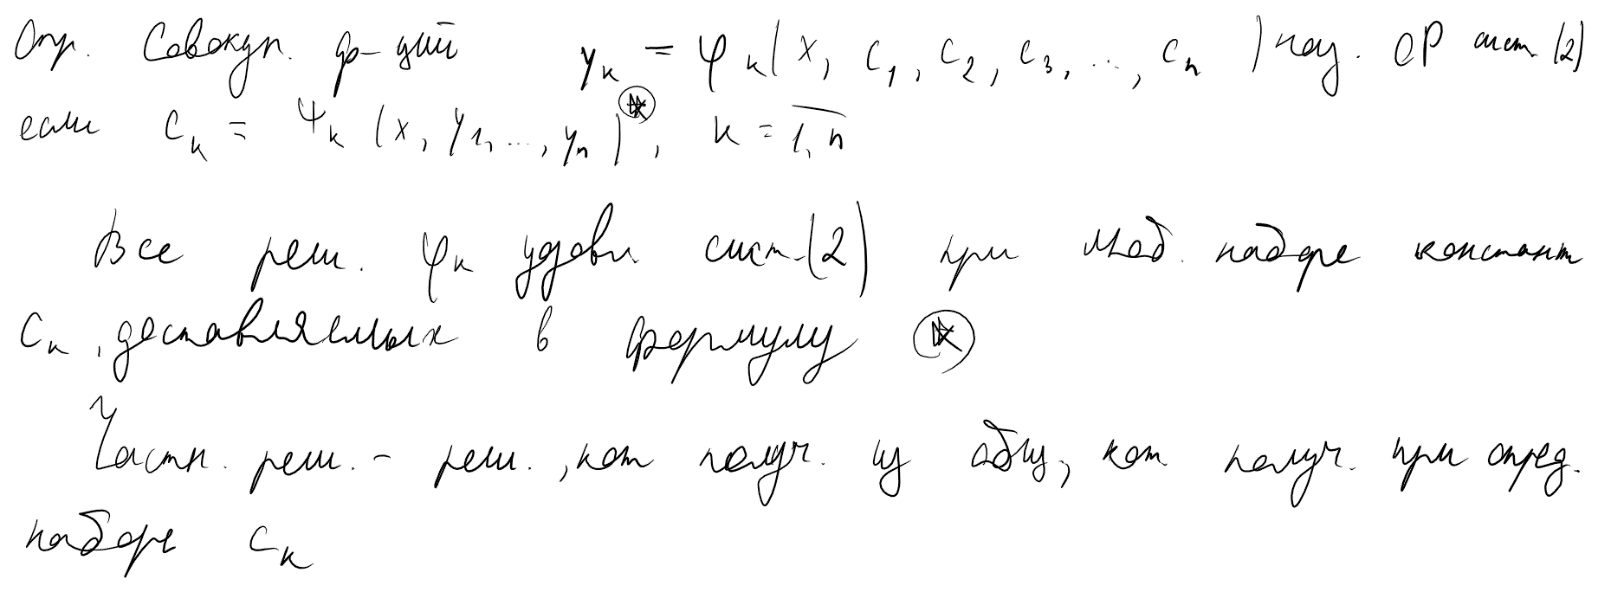 Опр. Совокуп. ф-ций y_k = φ_k(x, c_1, c_2, c_3, ..., c_n) наз. ОР сист (2)
если c_k = ψ_k (x, y_1, ..., y_n)^⊛, k = \overline{1, n}
Все реш. φ_k удовл. сист. (2) при люб. наборе констант
c_k, доставляемых в формулу ⊛
Частн. реш. - реш., кот получ. из общ, кот получ. при опред.
наборе c_k